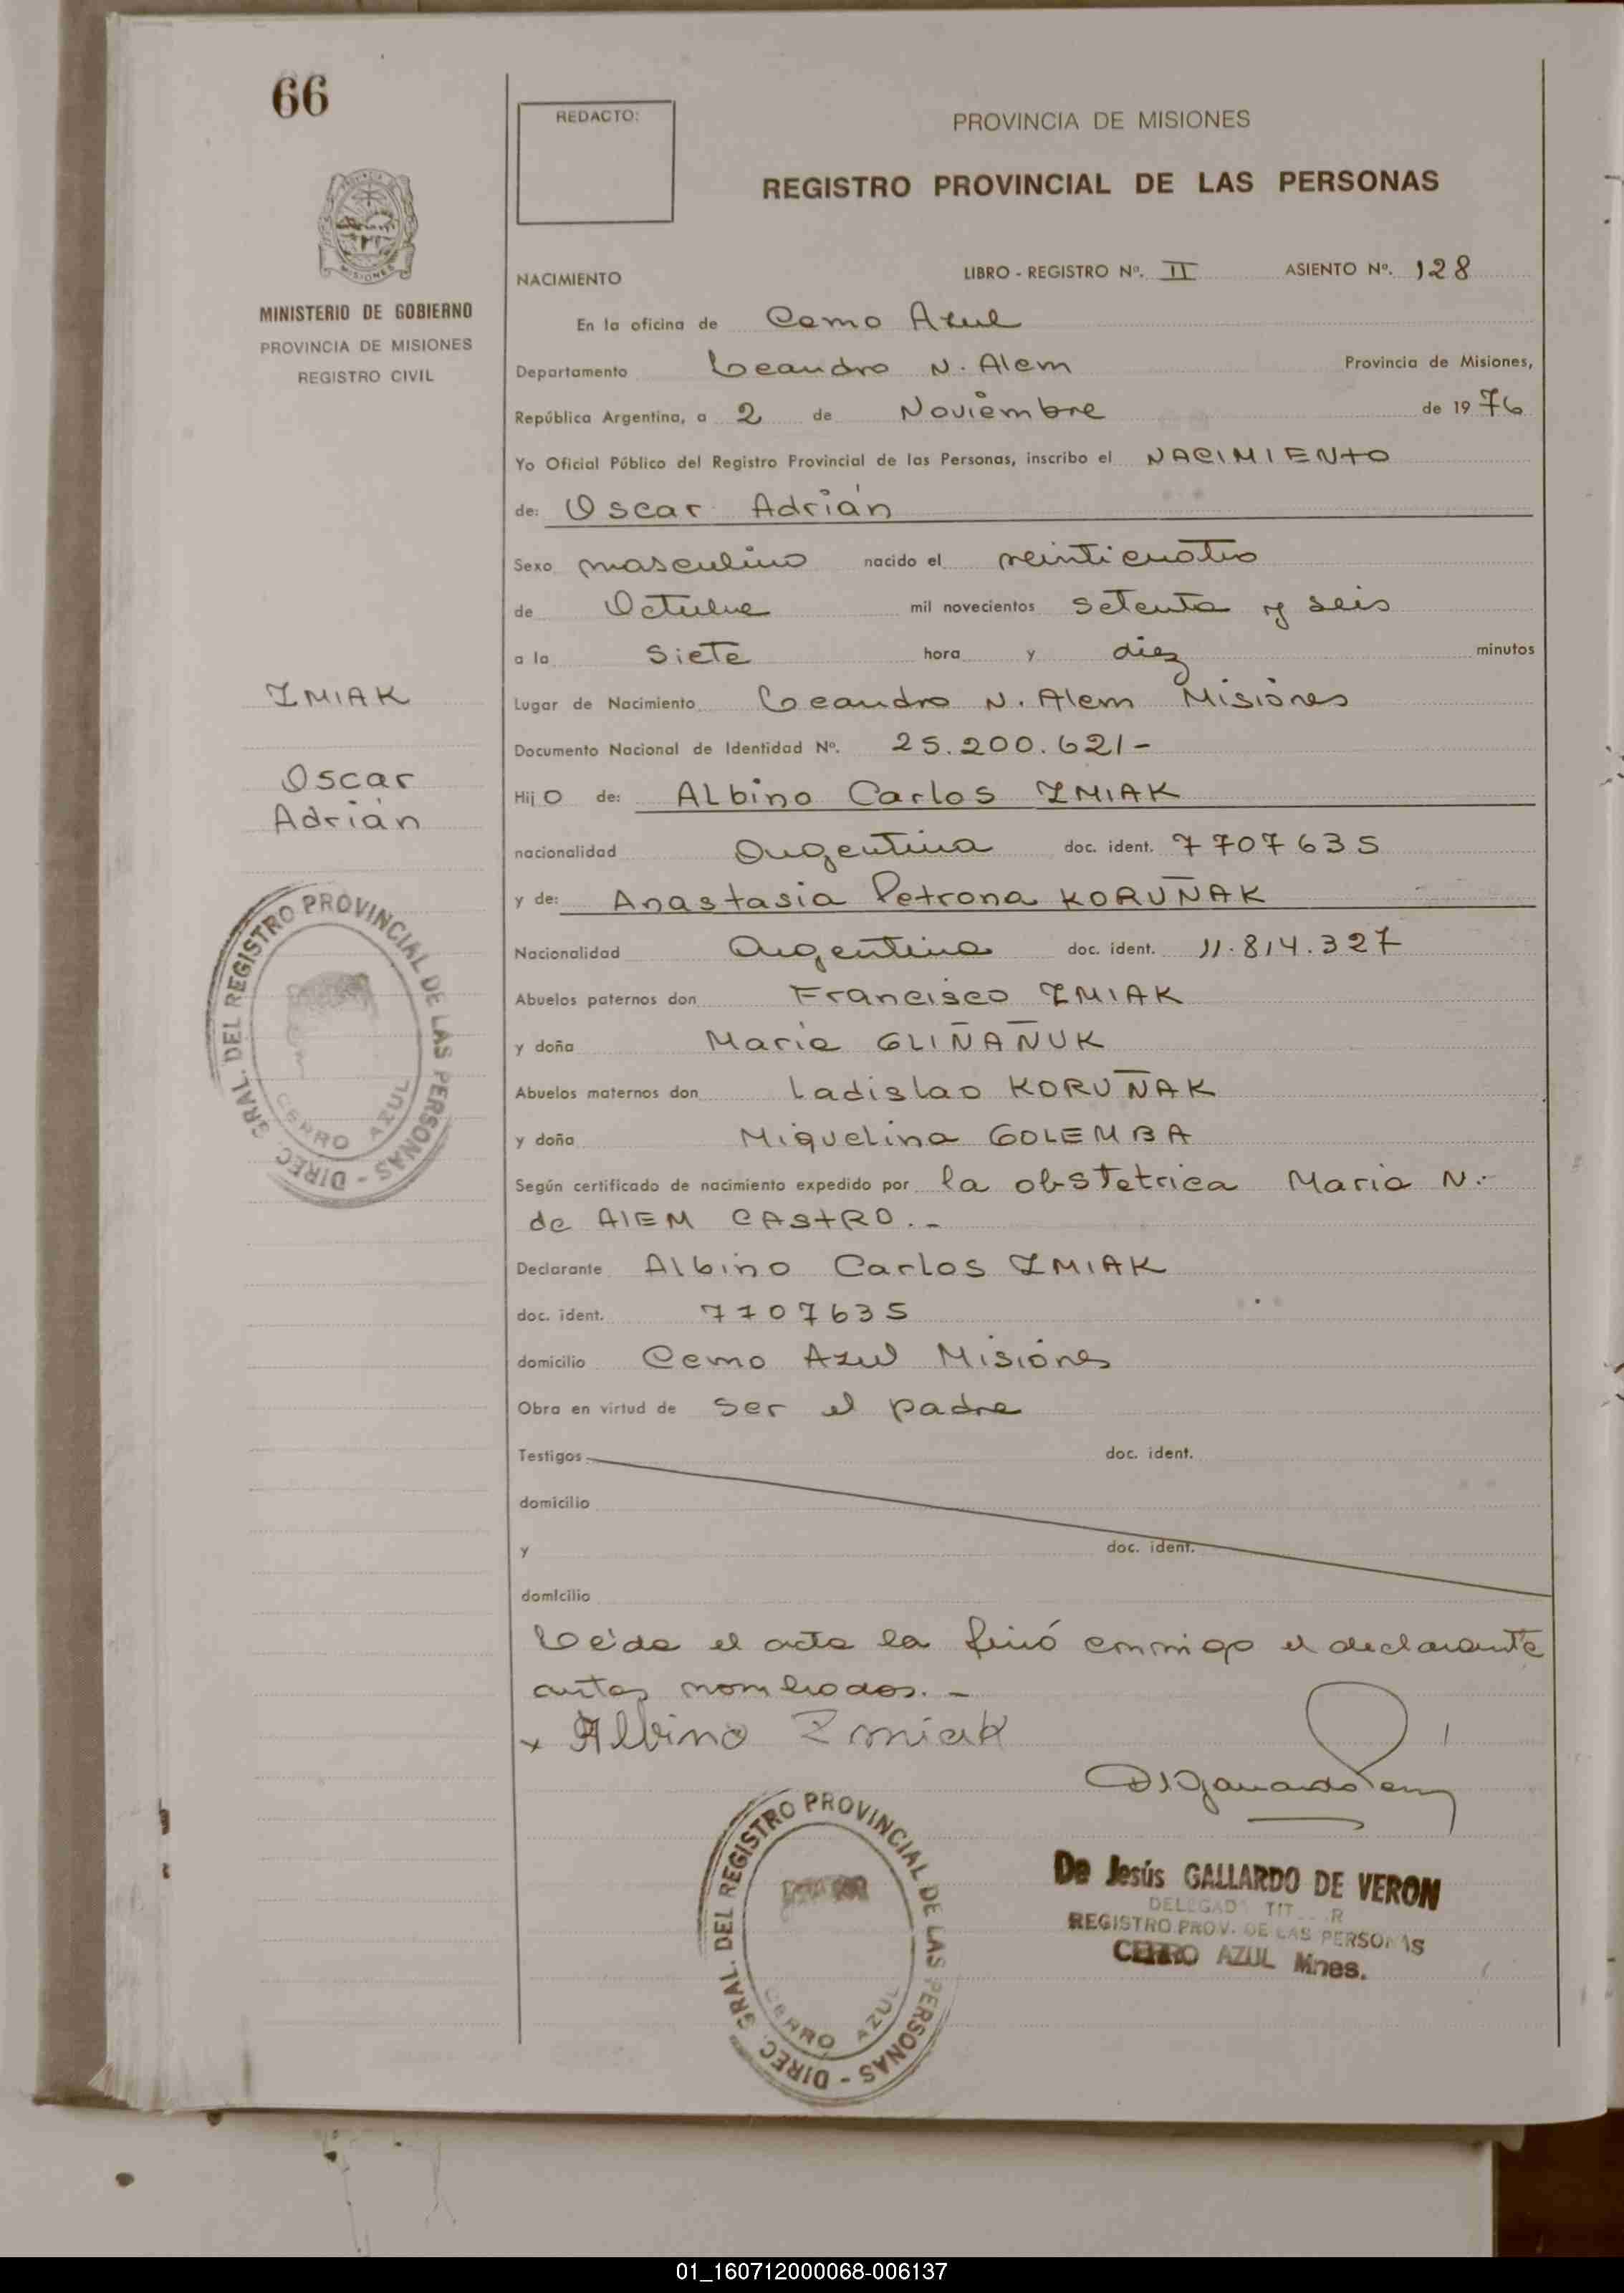 66
REDACTO:
PROVINCIA DE MISIONES
REGISTRO PROVINCIAL DE LAS PERSONAS
MINISTERIO DE GOBIERNO
PROVINCIA DE MISIONES
REGISTRO CIVIL
NACIMIENTO LIBRO - REGISTRO Nº. II ASIENTO Nº. 128
En la oficina de Cerro Azul
Departamento Leandro N. Alem Provincia de Misiones,
República Argentina, a 2 de Noviembre de 1976
Yo Oficial Público del Registro Provincial de las Personas, inscribo el NACIMIENTO
de: Oscar Adrián
Sexo masculino nacido el veinticuatro
de Octubre mil novecientos setenta y seis
a la siete hora y diez minutos
Lugar de Nacimiento Leandro N. Alem Misiones
Documento Nacional de Identidad Nº. 25.200.621-
Hijo de: Albino Carlos ZMIAK
nacionalidad Argentina doc. ident. 7707635
y de: Anastasia Petrona KORUÑAK
Nacionalidad Argentina doc. ident. 11.814.327
Abuelos paternos don Francisco ZMIAK
y doña Maria GLIÑAÑUK
Abuelos maternos don Ladislao KORUÑAK
y doña Miquelina GOLEMBA
Según certificado de nacimiento expedido por la obstetrica Maria N.-
de AlEM CASTRO.-
Declarante Albino Carlos ZMIAK
doc. ident. 7707635
domicilio Cerro Azul Misiones
Obra en virtud de ser el padre
Testigos doc. ident.
domicilio
y doc. ident.
domicilio
Leida el acta la firmó conmigo el declarante
antes nombrados.-
x Albino Zmiak
ZMIAK
Oscar
Adrián
DIREC. GRAL. DEL REGISTRO PROVINCIAL DE LAS PERSONAS -
CERRO AZUL
DIREC. GRAL. DEL REGISTRO PROVINCIAL DE LAS PERSONAS -
CERRO AZUL
De Jesús GALLARDO DE VERON
REGISTRO PROV. DE LAS PERSONAS
CERRO AZUL Mnes.
01_160712000068-006137